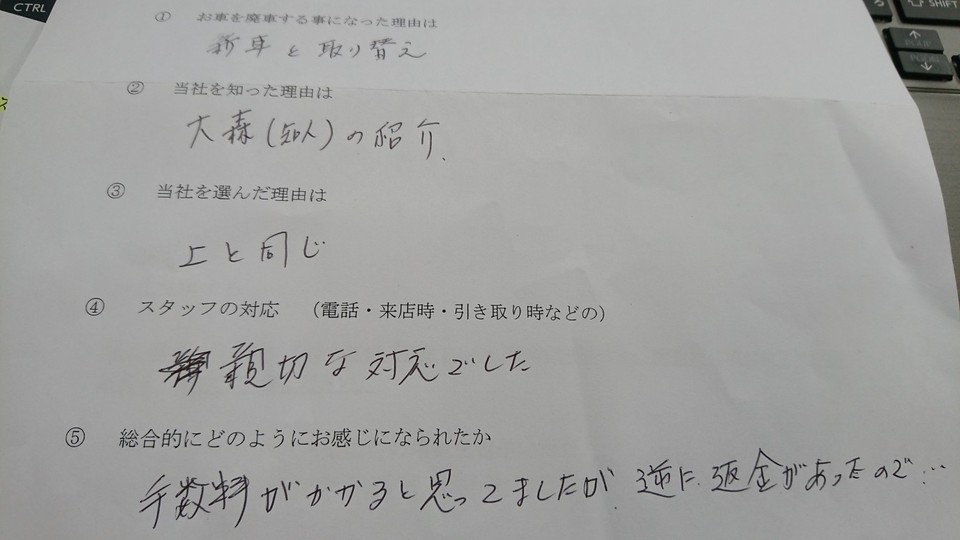 CTRL
SHIFT
① お車を廃車する事になった理由は
新車と取り替え
② 当社を知った理由は
大森(知人)の紹介.
③ 当社を選んだ理由は
上と同じ
④ スタッフの対応 (電話・来店時・引き取り時などの)
親切な対応でした
⑤ 総合的にどのようにお感じになられたか
手数料がかかると思ってましたが、逆に、返金があったので…